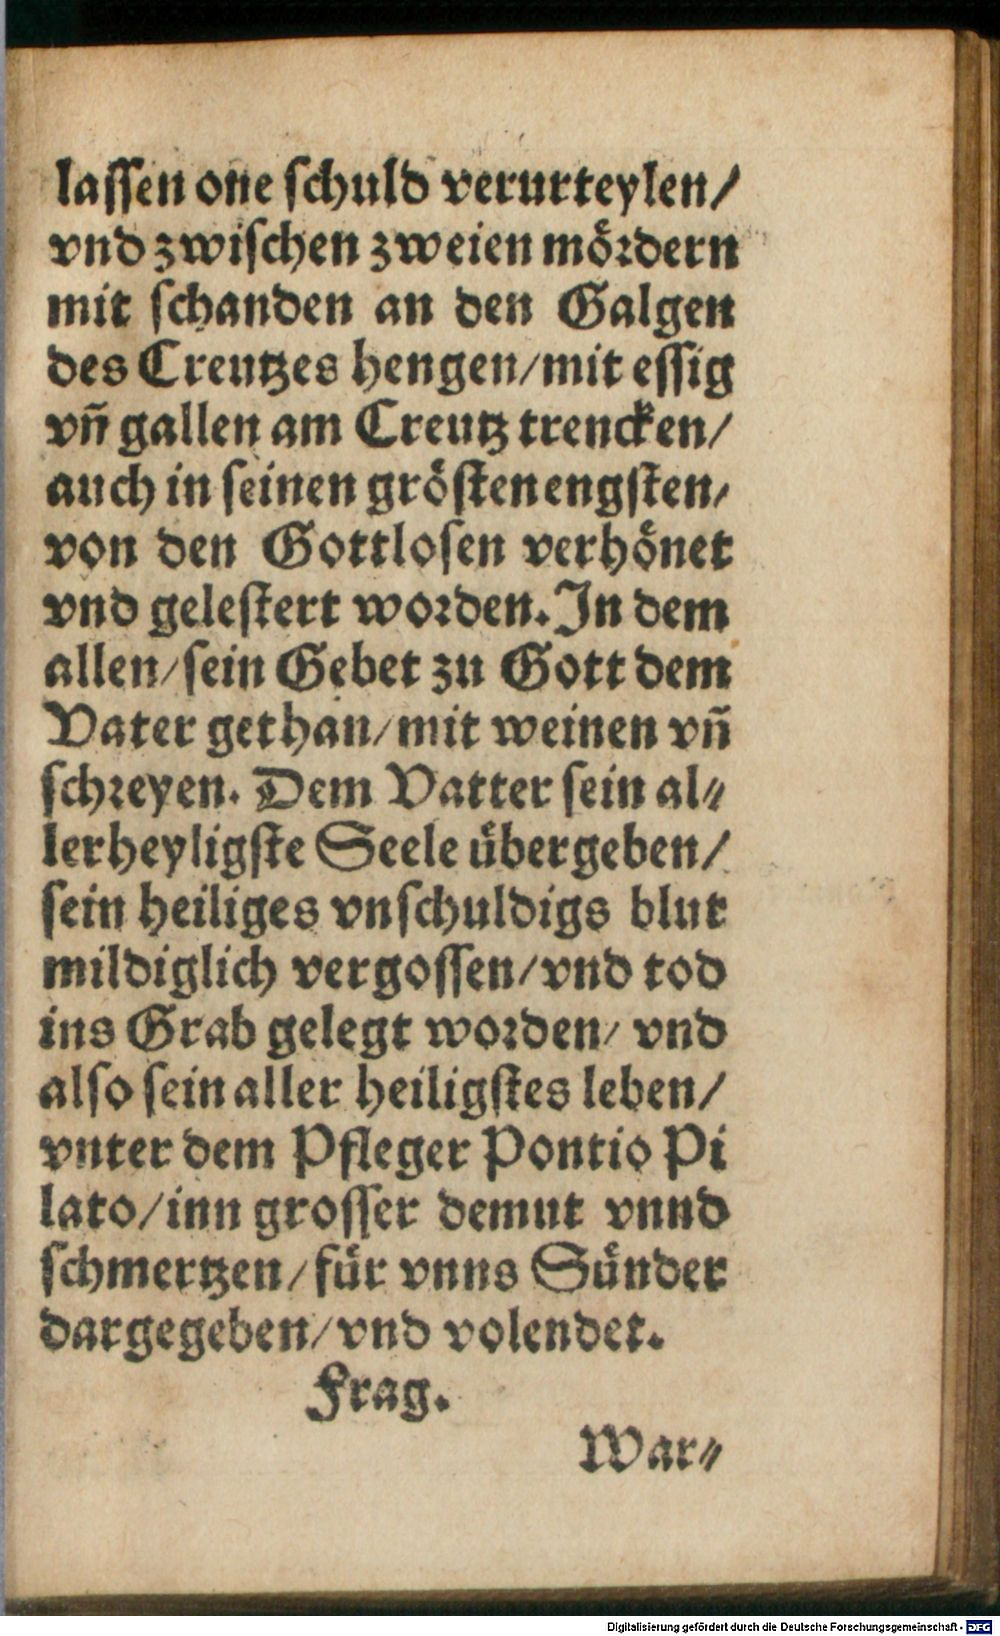 lassen one schuld verurteylen/
vnd zwischen zweien mördern
mit schanden an den Galgen
des Creutzes hengen/mit essig
vñ gallen am Creutz trencken/
auch in seinen grösten engsten/
von den Gottlosen verhönet
vnd gelestert worden. In dem
allen/sein Gebet zu Gott dem
Vater gethan/mit weinen vñ
schreyen. Dem Vatter sein al⸗
lerheyligste Seele übergeben/
sein heiliges vnschuldigs blut
mildiglich vergossen/vnd tod
ins Grab gelegt worden/ vnd
also sein aller heiligstes leben/
vnter dem Pfleger Pontio Pi
lato/inn grosser demut vnnd
schmertzen/für vnns Sünder
dargegeben/vnd volendet.
Frag.
War⸗
Digitalisierung gefördert durch die Deutsche Forschungsgemeinschaft - DFG